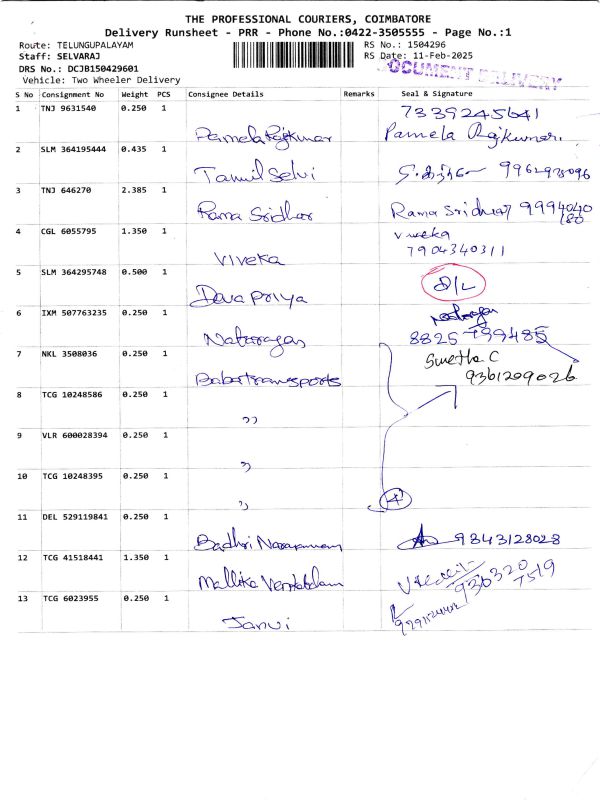 THE PROFESSIONAL COURIERS, COIMBATORE
Delivery Runsheet - PRR - Phone No.:0422-3505555 - Page No.:1
Route: TELUNGUPALAYAM RS No.: 1504296
Staff: SELVARAJ RS Date: 11-Feb-2025
DOCUMENT DELIVERY
DRS No.: DCJB150429601
Vehicle: Two Wheeler Delivery
S No Consignment No Weight PCS Consignee Details Remarks Seal & Signature
1 TNJ 9631540 0.250 1 7339245641
Pamela Rajkumar Pamela Rajkumar
2 SLM 364195444 0.435 1
Tamil Selvi
3 TNJ 646270 2.385 1
Rama Sridhar Rama Sridhar 9994040
180
4 CGL 6055795 1.350 1 Viveka
7904340311
Viveka
5 SLM 364295748 0.500 1
D/L
Deva Priya
6 IXM 507763235 0.250 1 Natarajan
Natarajan 8825799485
7 NKL 3508036 0.250 1 Swetha C
9361209026
Babatransports
8 TCG 10248586 0.250 1
"
9 VLR 600028394 0.250 1
"
10 TCG 10248395 0.250 1
" 4
11 DEL 529119841 0.250 1
Badhri Narayanan 9843128028
12 TCG 41518441 1.350 1
Mallika Venkatalam 936320
7519
13 TCG 6023955 0.250 1
Janvi